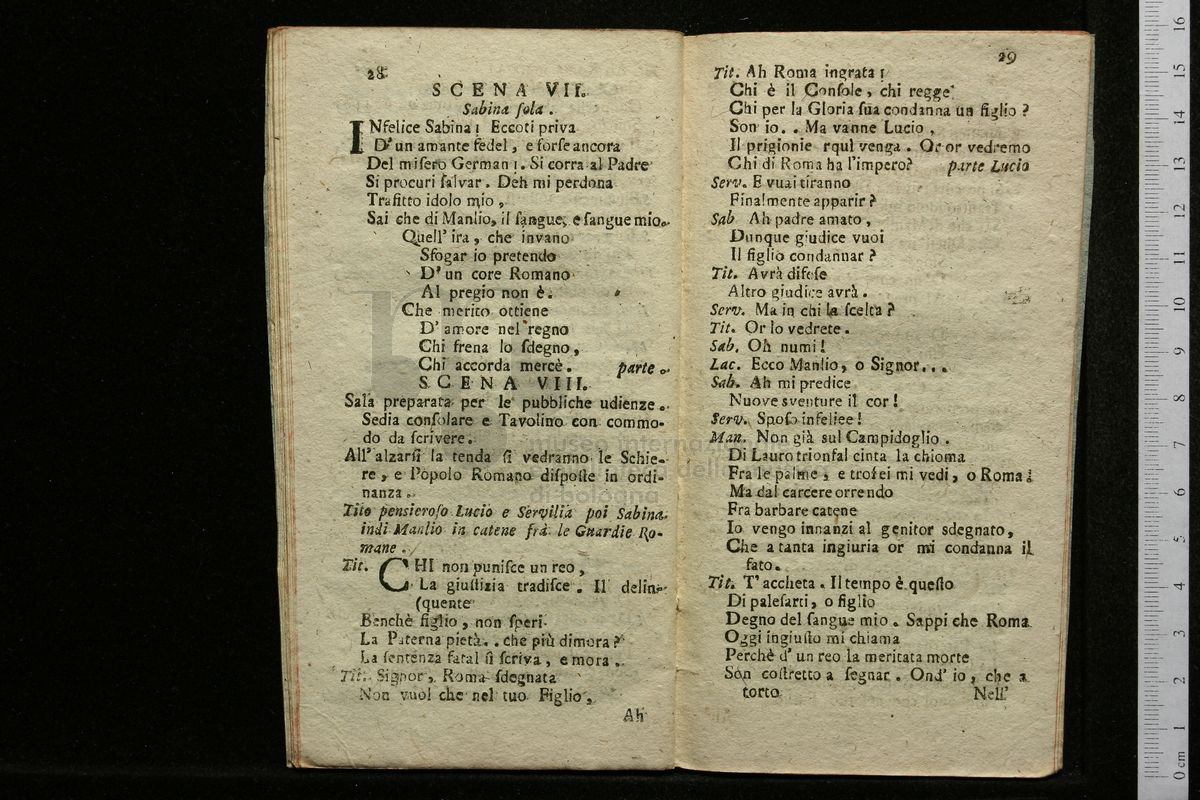 28
SCENA VII.
Sabina sola.
INfelice Sabina! Eccoti priva
D' un amante fedel, e forse ancora
Del misero German!. Si corra al Padre
Si procuri salvar. Deh mi perdona
Trafitto idolo mio,
Sai che di Manlio, il sangue, e sangue mio.
Quell' ira, che invano
Sfogar io pretendo
D' un core Romano
Al pregio non è.
Che merito ottiene
D' amore nel regno
Chi frena lo sdegno,
Chi accorda mercè. parte.
SCENA VIII.
Sala preparata per le pubbliche udienze.
Sedia consolare e Tavolino con commo-
do da scrivere.
All' alzarsi la tenda si vedranno le Schie-
re, e Popolo Romano disposte in ordi-
nanza.
Tito pensieroso Lucio e Servilia poi Sabina
indi Manlio in catene frà le Guardie Ro-
mane.
Tit. CHI non punisce un reo,
La giustizia tradisce. Il delin-
(quente
Benchè figlio, non speri
La Paterna pietà.. che più dimora?
La sentenza fatal si scriva, e mora.
Tit. Signor, Roma sdegnata
Non vuol che nel tuo Figlio,
Ah
29
Tit. Ah Roma ingrata!
Chi è il Console, chi regge
Chi per la Gloria sua condanna un figlio?
Son io.. Ma vanne Lucio,
Il prigionie rquì venga. Or or vedremo
Chi di Roma ha l'impero? parte Lucio
Serv. E vuai tiranno
Finalmente apparir?
Sab Ah padre amato,
Dunque giudice vuoi
Il figlio condannar?
Tit. Avrà difese
Altro giudice avrà.
Serv. Ma in chi la scelta?
Tit. Or lo vedrete.
Sab. Oh numi!
Lac. Ecco Manlio, o Signor...
Sab. Ah mi predice
Nuove sventure il cor!
Serv. Sposo infeliee!
Man. Non già sul Campidoglio.
Di Lauro trionfal cinta la chioma
Fra le palme, e trofei mi vedi, o Roma!
Ma dal carcere orrendo
Fra barbare catene
Io vengo innanzi al genitor sdegnato,
Che a tanta ingiuria or mi condanna il
fato.
Tit. T' accheta. Il tempo è questo
Di palesarti, o figlio
Degno del sangue mio. Sappi che Roma
Oggi ingiusto mi chiama
Perchè d' un reo la meritata morte
Son costretto a segnar. Ond' io, che a
torto
Nell'
museo internazionale
della
di bologna
0 cm 1 2 3 4 5 6 7 8 9 10 11 12 13 14 15 16